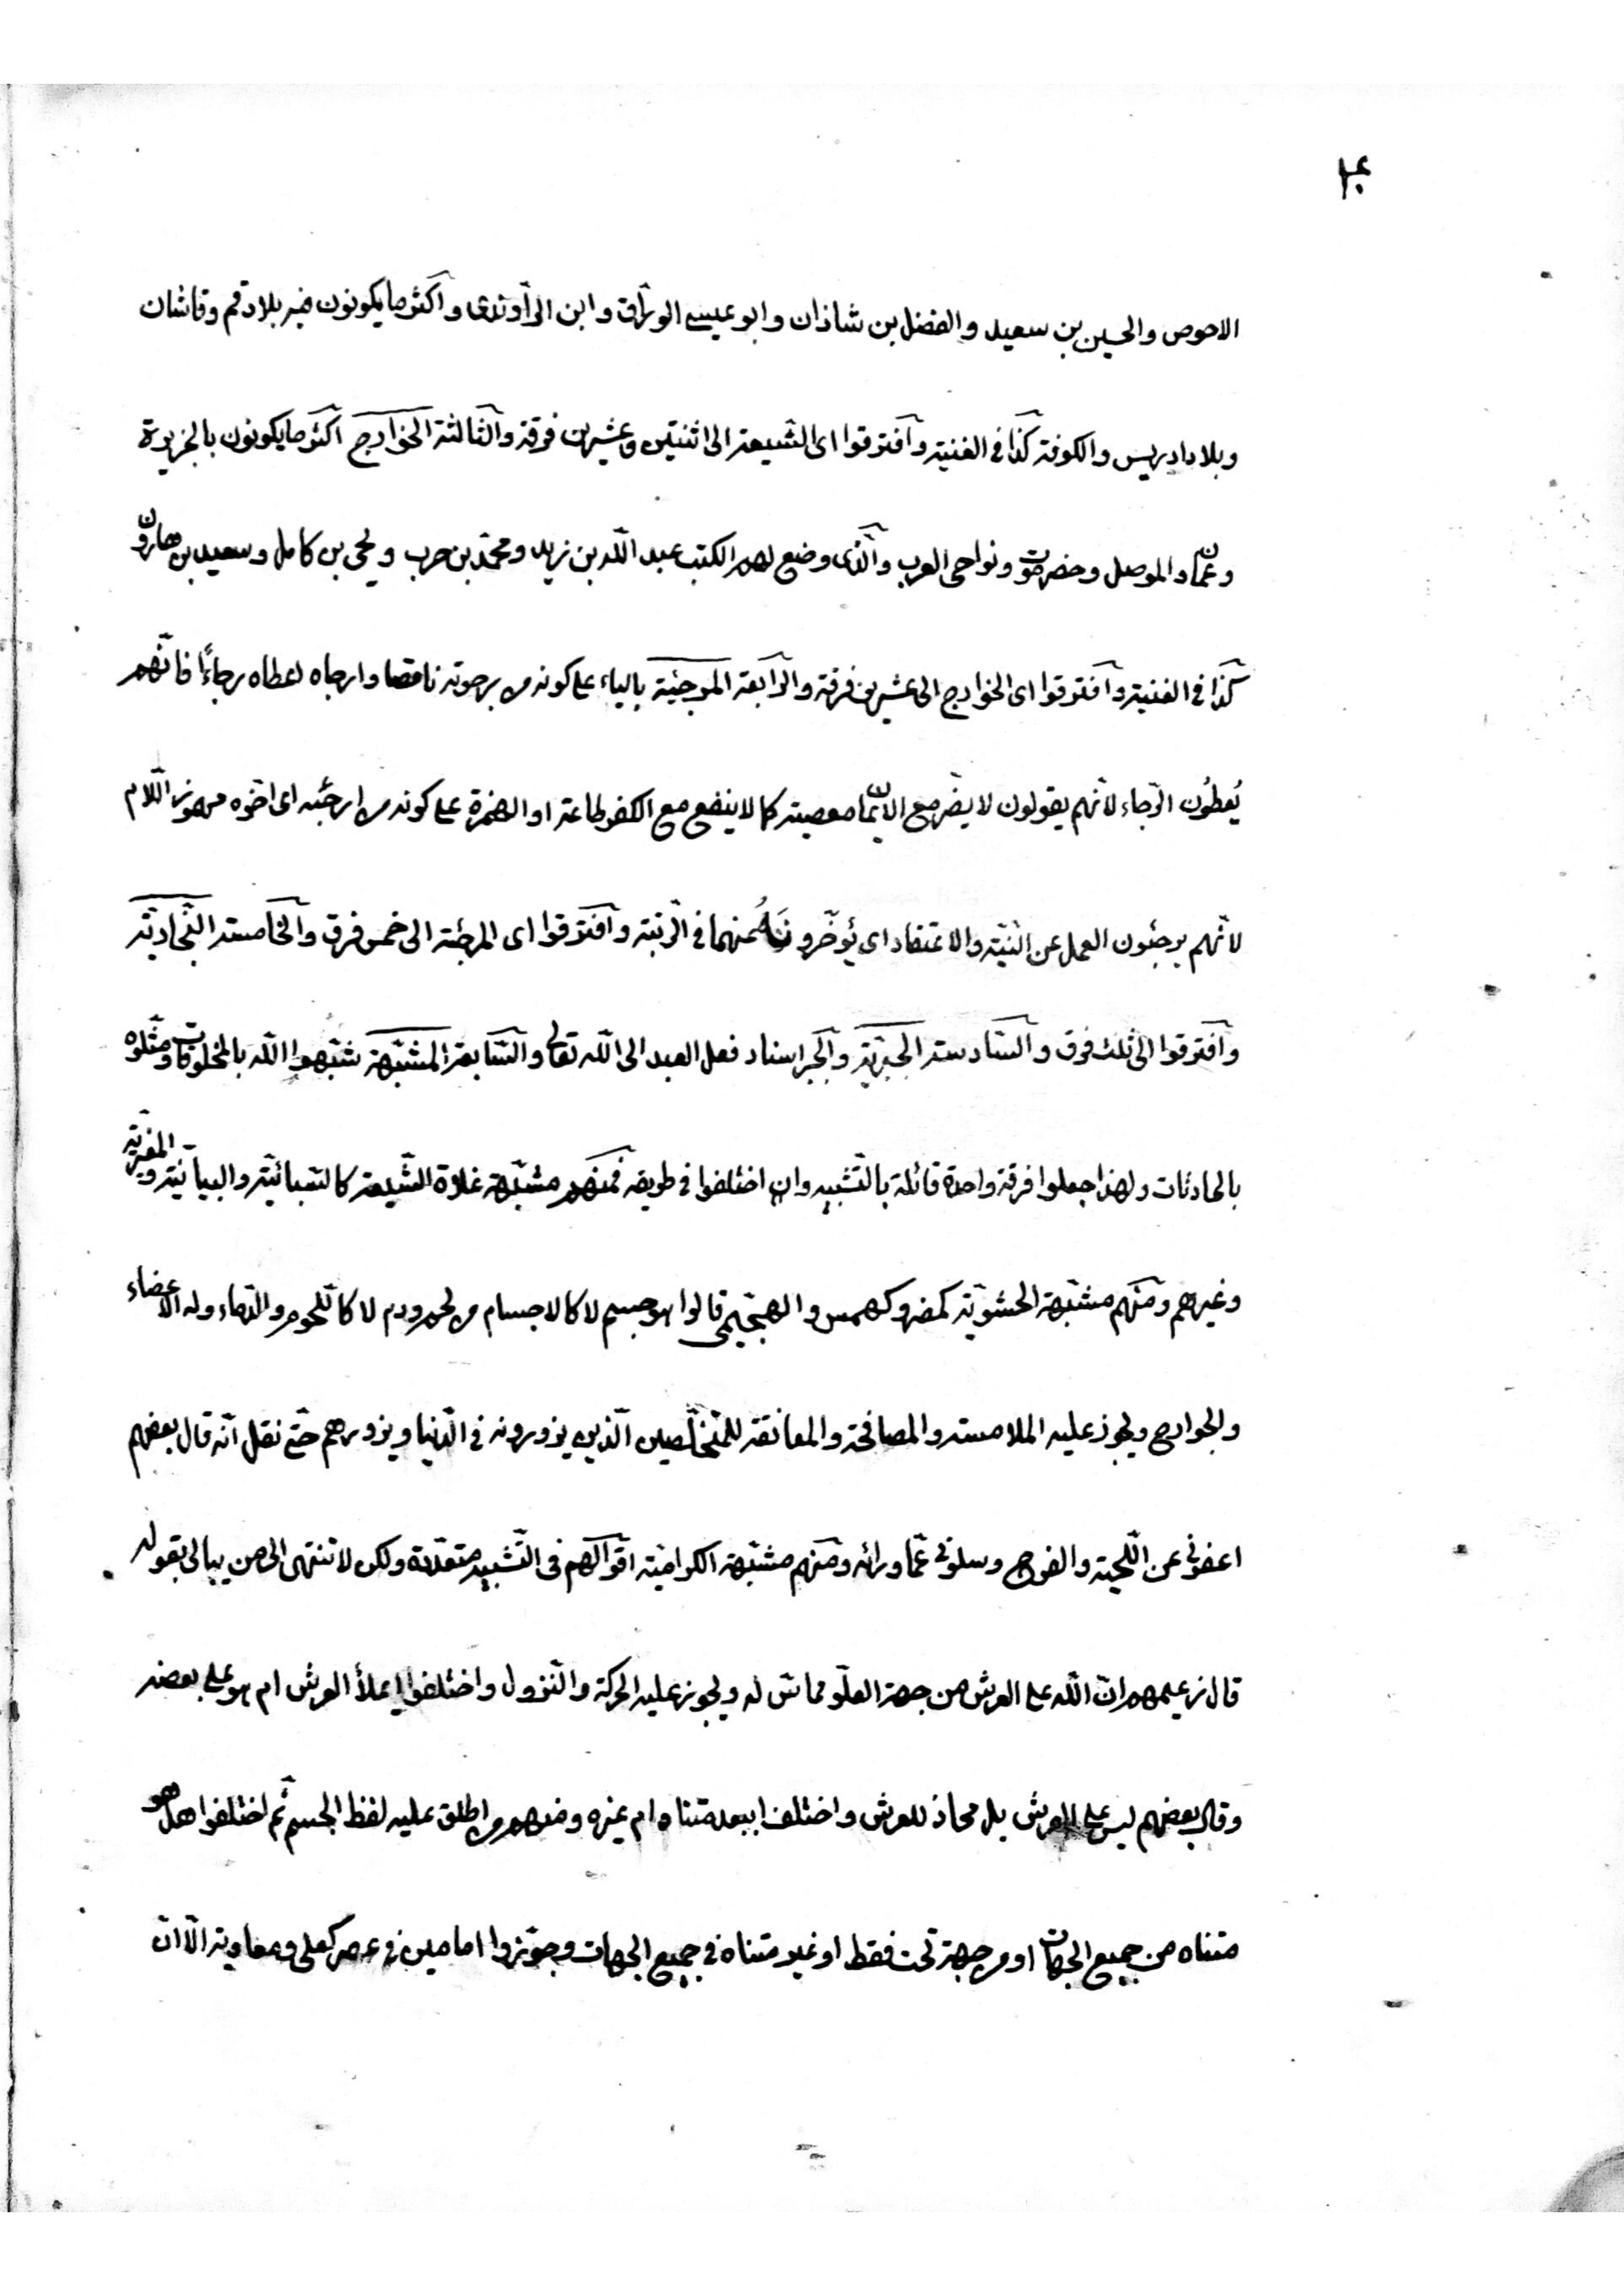 الاحوص والحسين بن سعيد والفضل بن شاذان وابو عيسى الورّاق وابن الرّاوندى واكثر ما يكونون فيه بلاد قم وقاشان
وبلاد ادريس والكوفة كذا فى الغنية وافترقوا اى الشّيعة الى اثنتين وعشرين فرقة والثّالثة الخوارج اكثر ما يكونون بالجزيرة
وعمان والموصل وحضرموت ونواحى العرب والّذى وضع لهم الكتب عبد اللّه بن زيد ومحمّد بن حرب ويحى بن كامل وسعيد بن هارون
كذا فى الغنية وافترقوا اى الخوارج الى عشرين فرقة والرّابعة المرجئية بالياء على كونه من يرجوته ناقصا وارجاه اعطاه رجاءً فانّهم
يُعطُون الرّجاء لانّهم يقولون لا يضرّ مع الايمان معصية كما لا ينفع مع الكفر طاعة او الهمزة على كونه من ارجئه اى اخّره مهموز اللّام
لانّهم يرجئون العمل عن النّيّة والاعتقاد اى يؤخّرونَهُ منهما فى الرّتبة وافترقوا اى المرجئة الى خمس فرق والخامسة النّجاريّة
وافترقوا الى ثلث فرق والسّادسة الجبريّة والجبر اسناد فعل العبد الى اللّه تعالى والسّابعة المشبّهة شبّهوا اللّه بالمخلوقات ومثّلوه
بالحادثات ولهذا جعلوا فرقة واحدة قائلة بالتّشبيه وان اختلفوا فى طريقه فمنهم مشبّهة غلاة الشّيعة كالسّبائيّة والبيانيّة والمغيريّة
وغيرهم ومنهم مشبّهة الحشويّة كمضر وكهمس والهجيمى قالوا هو جسم لا كالاجسام من لحم ودم لا كاللّحوم والدّماء وله الاعضاء
والجوارح ويجوز عليه الملامسة والمصافحة والمعانقة للمخلصين الّذين يزورونه فى الدّنيا ويزورهم حتّى نقل انّه قال بعضهم
اعفونى عن اللّحية والفرج وسلونى عمّا ورائه ومنهم مشبّهة الكراميّة اقوالهم فى التّشبيه متعدّدة ولكن لا تنتهى الى من يبالى بقوله
قال زعيمهم انّ اللّه على العرش من جهة العلوّ مماسّ له ويجوز عليه الحركة والنّزول واختلفوا ايملأ العرش ام هو على بعضه
وقال بعضهم ليس على العرش بل محاذ للعرش واختلف ابيعد متناه ام غيره ومنهم من اطلق عليه لفظ الجسم ثم اختلفوا هل هو
متناه من جميع الجهات او من جهة تحت فقط او غير متناه فى جميع الجهات وجوّزوا امامين فى عصر كعلى ومعاوية الّا انّ